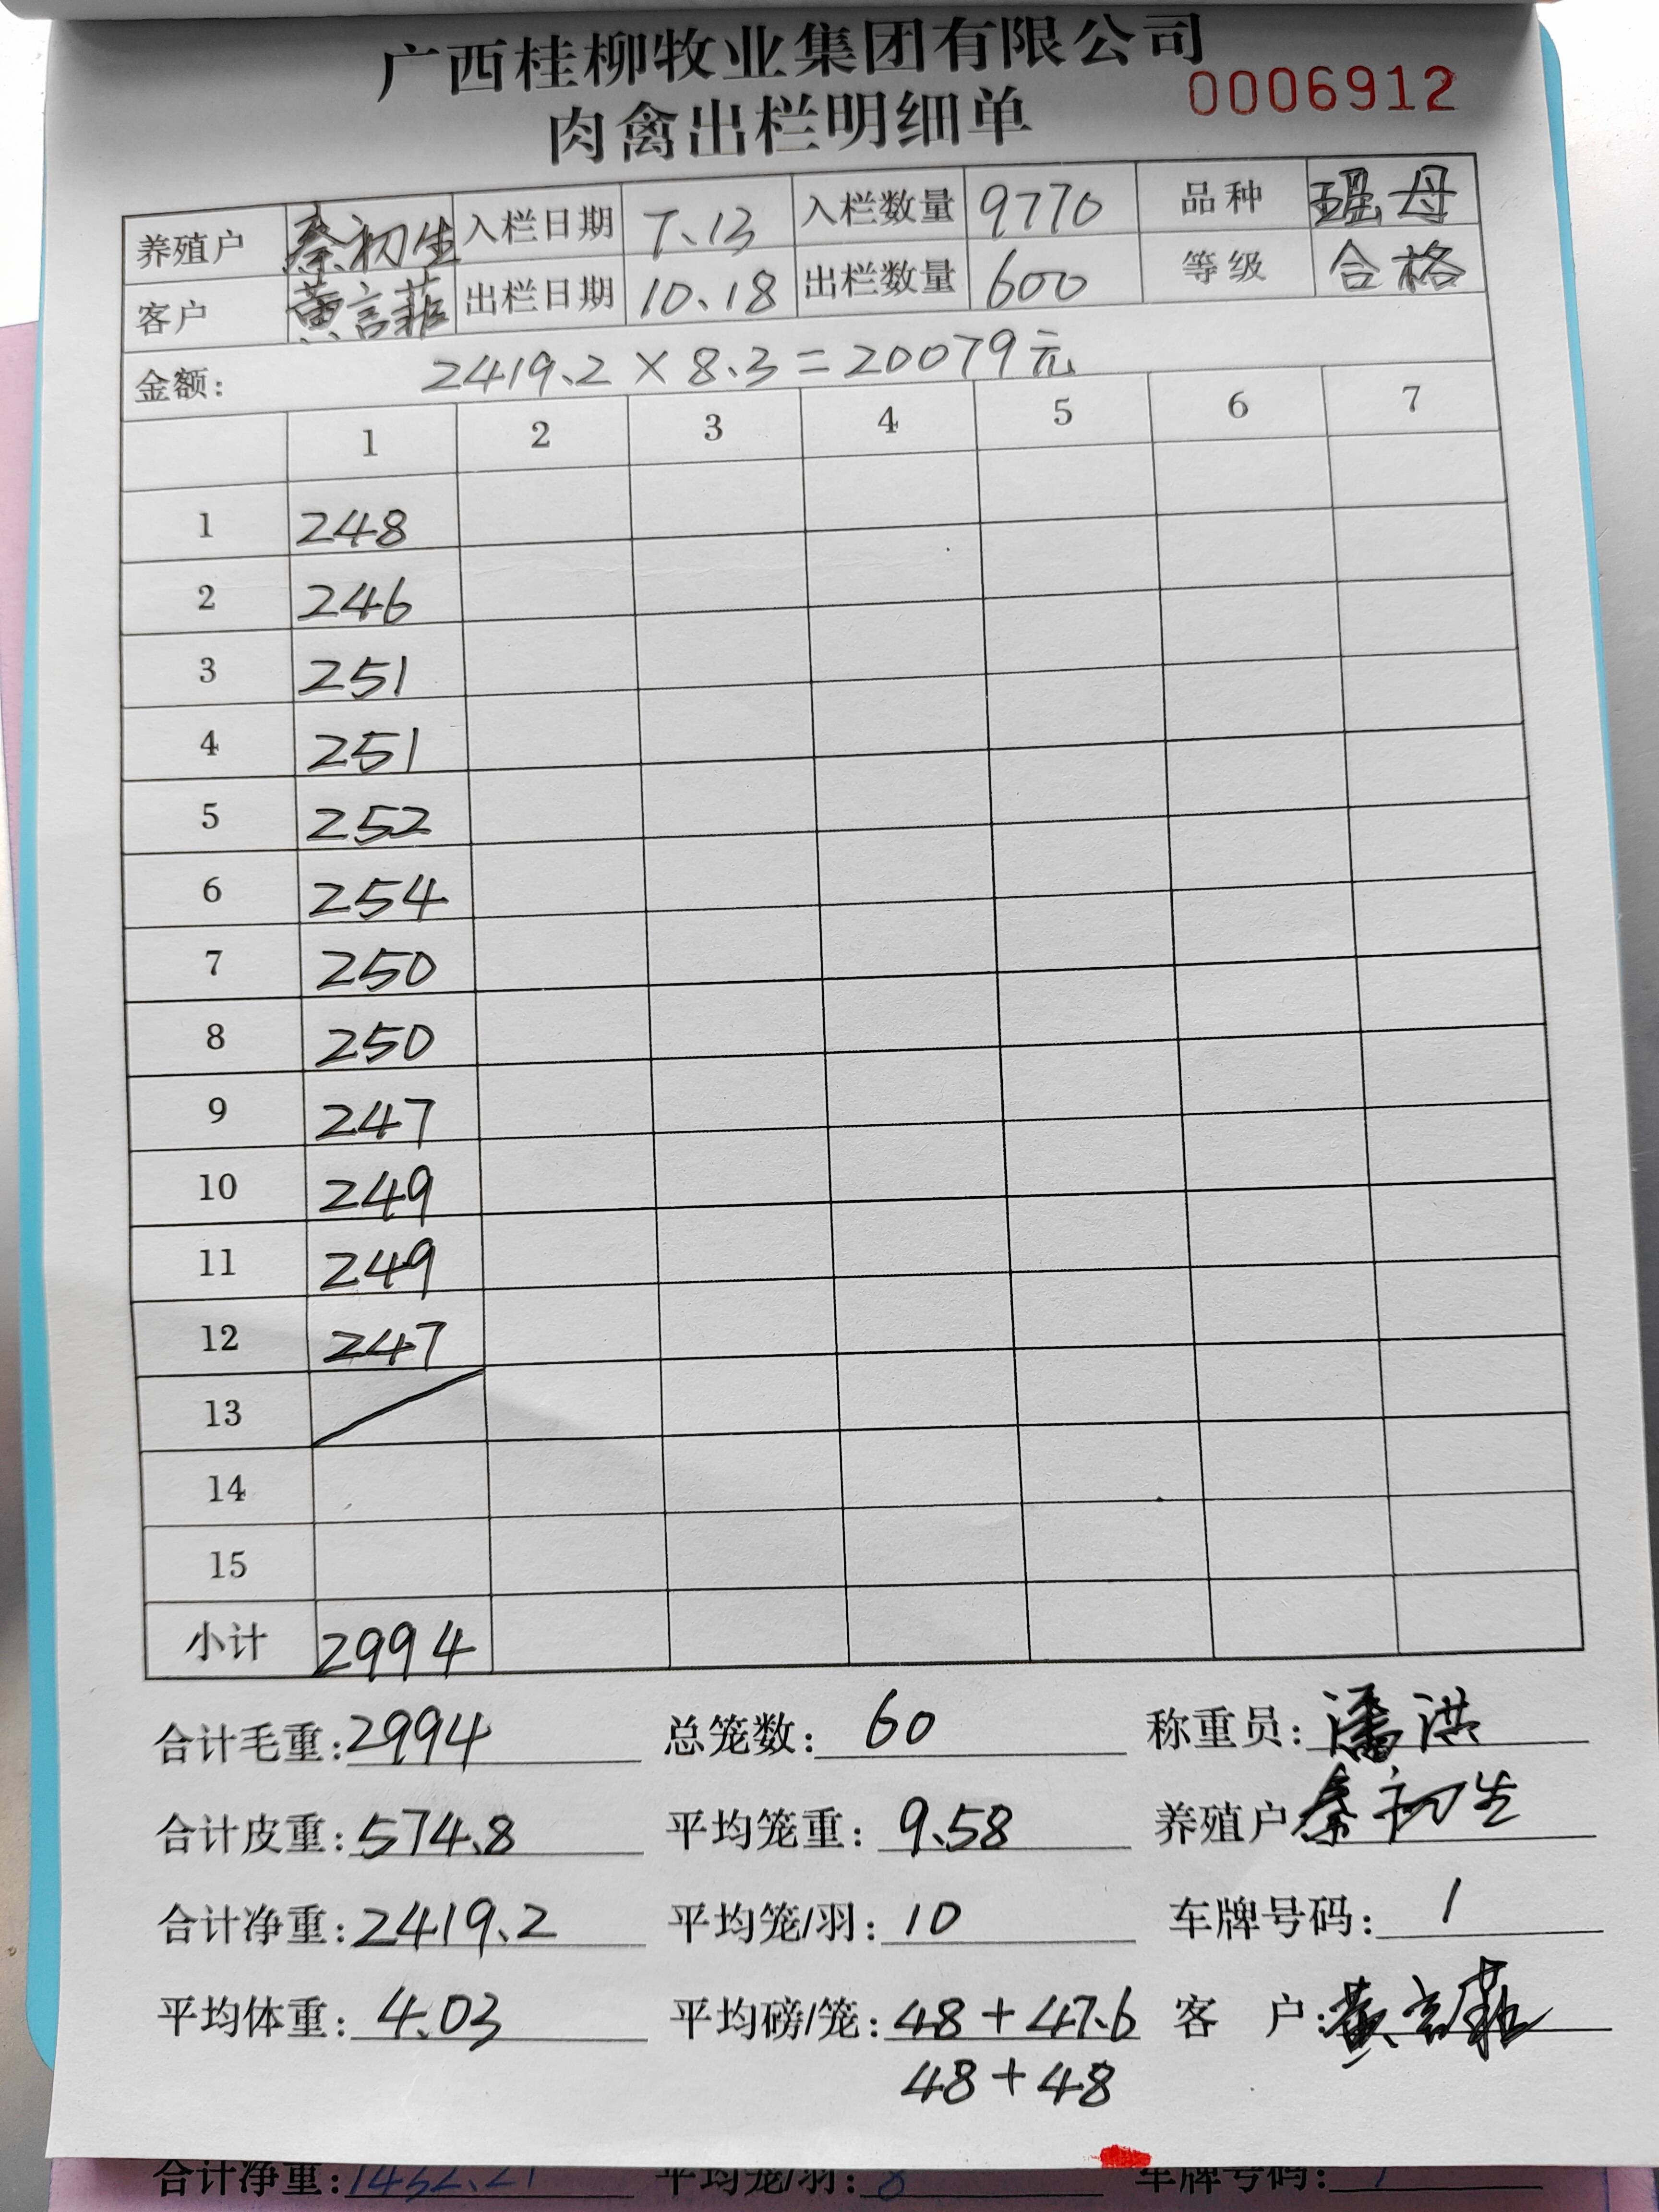 广西桂柳牧业集团有限公司
肉禽出栏明细单 0006912
养殖户 秦初生 入栏日期 7.13 入栏数量 9770 品种 瑶母
客户 黄言菲 出栏日期 10.18 出栏数量 600 等级 合格
金额: 2419.2×8.3=20079元
1 2 3 4 5 6 7
1 248
2 246
3 251
4 251
5 252
6 254
7 250
8 250
9 247
10 249
11 249
12 247
13
14
15
小计 2994
合计毛重:2994 总笼数:60 称重员:潘洪
合计皮重:574.8 平均笼重:9.58 养殖户秦初生
合计净重:2419.2 平均笼/羽:10 车牌号码:1
平均体重:4.03 平均磅/笼:48+47.6 客 户:黄言菲
48+48
合计净重:1452.21 平均笼/羽:8 车牌号码: